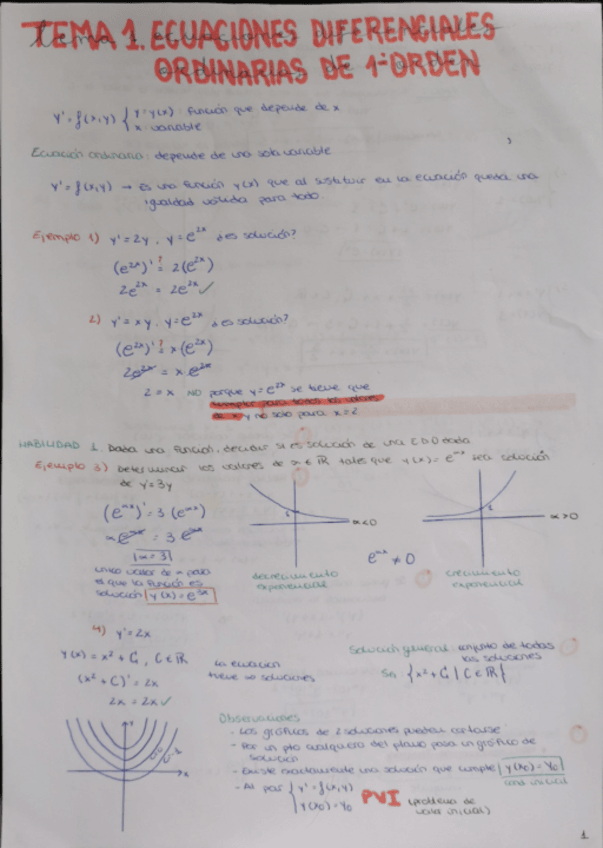 TEMA 1. ECUACIONES DIFERENCIALES
ORDINARIAS DE 1er ORDEN
y' = f(x,y) { y = y(x) función que depende de x
x variable
Ecuación ordinaria: depende de una sola variable
y' = f(x,y) → es una función y(x) que al sustituir en la ecuación queda una
igualdad válida para todo.
Ejemplo 1) y' = 2y, y = e^2x ¿es solución?
(e^2x)' ?= 2(e^2x)
2e^2x = 2e^2x ✓
2) y' = xy, y = e^2x ¿es solución?
(e^2x)' ?= x(e^2x)
2e^2x = x·e^2x
2 = x NO porque y = e^2x se tiene que
cumplir para todos los valores
de x y no solo para x = 2
HABILIDAD 1. Dada una función, decidir si es solución de una EDO dada
Ejemplo 3) Determinar los valores de α ∈ ℝ tales que y(x) = e^αx sea solución
de y' = 3y
(e^αx)' = 3(e^αx)
αe^αx = 3e^αx
α = 3
único valor de α para
el que la función es
solución y(x) = e^3x
1
α<0
decrecimiento
exponencial
e^αx ≠ 0
1
α>0
crecimiento
exponencial
4) y' = 2x
y(x) = x² + C, C ∈ ℝ
(x² + C)' = 2x
2x = 2x ✓
La ecuación
tiene ∞ soluciones
Solución general: conjunto de todas
las soluciones
{x² + C | C ∈ ℝ}
Y
x
C=0
C=-1
Observaciones
- Los gráficos de 2 soluciones pueden cortarse
- Por un pto cualquiera del plano pasa un gráfico de
solución
- Existe exactamente una solución que cumple y(x0) = y0
cond. inicial
- Al par { y' = f(x,y)
y(x0) = y0
PVI (problema de
valor inicial)
1.